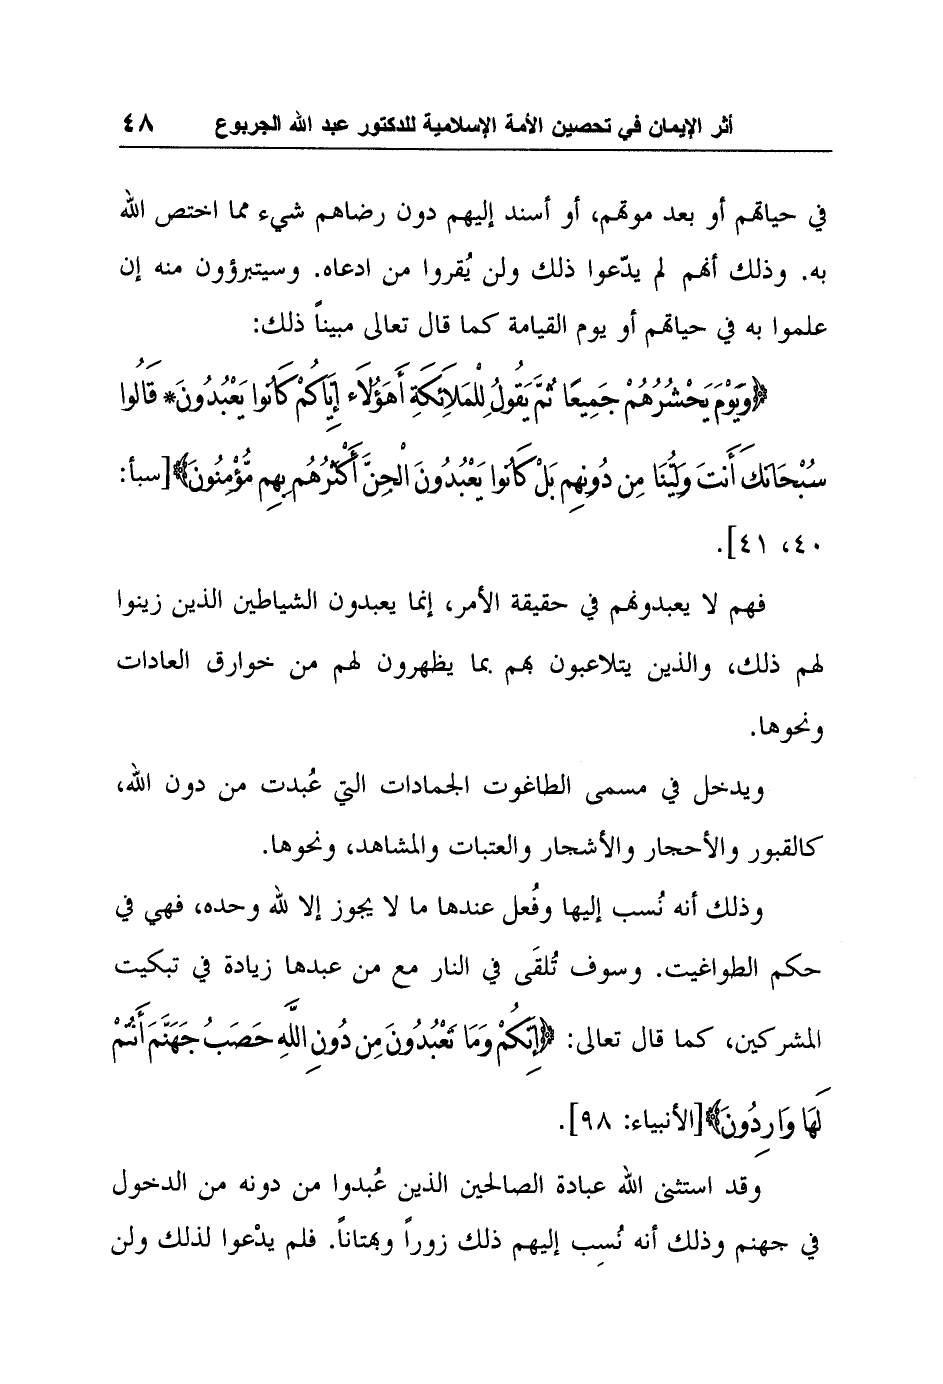 أثر الإيمان في تحصين الأمة الإسلامية للدكتور عبد الله الجربوع ٤٨
في حياتهم أو بعد موتهم، أو أسند إليهم دون رضاهم شيء مما اختص الله
به. وذلك أنهم لم يدّعوا ذلك ولن يُقروا من ادعاه. وسيتبرؤون منه إن
علموا به في حياتهم أو يوم القيامة كما قال تعالى مبيناً ذلك:
﴿وَيَوْمَ يَحْشُرُهُمْ جَمِيعًا ثُمَّ يَقُولُ لِلْمَلَائِكَةِ أَهَؤُلَاءِ إِيَّاكُمْ كَانُوا يَعْبُدُونَ* قَالُوا
سُبْحَانَكَ أَنتَ وَلِيُّنَا مِن دُونِهِم بَلْ كَانُوا يَعْبُدُونَ الْجِنَّ أَكْثَرُهُم بِهِم مُّؤْمِنُونَ﴾[سبأ:
٤٠، ٤١].
فهم لا يعبدونهم في حقيقة الأمر، إنما يعبدون الشياطين الذين زينوا
لهم ذلك، والذين يتلاعبون بهم بما يظهرون لهم من خوارق العادات
ونحوها.
ويدخل في مسمى الطاغوت الجمادات التي عُبدت من دون الله،
كالقبور والأحجار والأشجار والعتبات والمشاهد، ونحوها.
وذلك أنه نُسب إليها وفُعل عندها ما لا يجوز إلا لله وحده، فهي في
حكم الطواغيت. وسوف تُلقَى في النار مع من عبدها زيادة في تبكيت
المشركين، كما قال تعالى: ﴿إِنَّكُمْ وَمَا تَعْبُدُونَ مِن دُونِ اللَّهِ حَصَبُ جَهَنَّمَ أَنتُمْ
لَهَا وَارِدُونَ﴾[الأنبياء: ٩٨].
وقد استثنى الله عبادة الصالحين الذين عُبدوا من دونه من الدخول
في جهنم وذلك أنه نُسِب إليهم ذلك زوراً وبهتاناً. فلم يدْعوا لذلك ولن